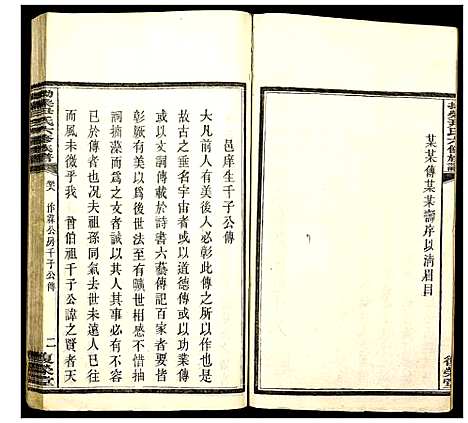 某某傳某某壽序以淸眉目
復榮堂
邑庠生千子公傳
大凡前人有美後人必彰此傳之所以作也
古之垂名宇宙者或以道德傳或以功業傳
或以文章傳於詩書六藝傳記百家者要皆
彰厥有美以爲後世法至有曠世相感不惜抽
詞摛藻爲之文者誠以其人其事必有不可
已於傳者也夫祖孫同氣去世未遠人已往
而風未微乎我 曾伯祖千子公諱之賢者天
尹氏六修族譜
卷八
作霖公房千子公傳
二
復榮堂